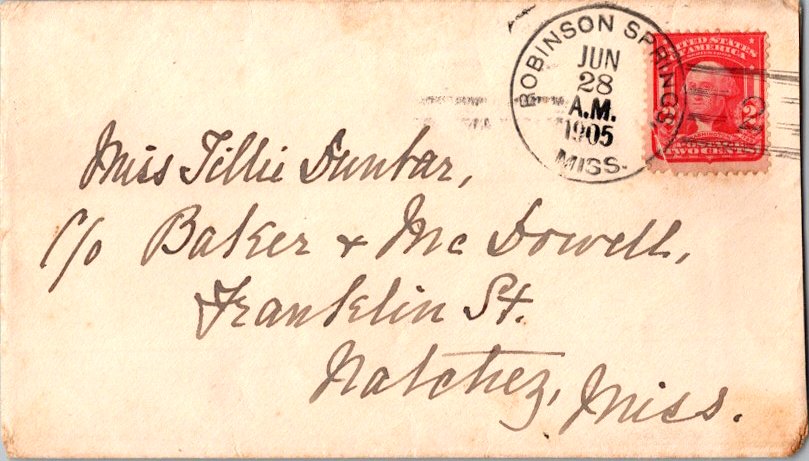 ROBINSON SPRINGS
JUN
28
A.M.
1905
MISS.
UNITED STATES
OF AMERICA
2 2
TWO CENTS
Miss Tillie Dunbar,
c/o Baker & McDowell,
Franklin St.
Natchez, Miss.